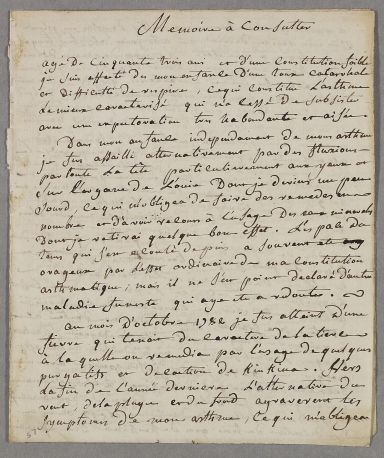 Memoire à Consulter
agé De Cinquante trois ans et d'une Constitution foible
je suis affecté des mon enfance D'une toux Catarrale
et Difficulté de respirer, ce qui constitue Lasthme
Le mieux Caracterisé qui n'a Cessé De subsister
avec une expectoration tres habondante et aisée.
Dans mon enfance independament de mon asthme
je fus assailli alternativement par des fluxions
par toute La tete particulierement aux yeux et
sur l'organe de Louie Dont je devins un peu
Sourd Ce qui m'obligea de faire des remedes
nombre et d'avoir recours à Lusage Des eaux minerales
Dont je retirai quelque bon effet. Les
tems qui s'en ecoulé depuis a souvent eté
orageux par L'effet ordinaire de ma Constitution
asthmatique, mais il ne s'est point declaré d'autre
maladie funeste qui aye eté a redouter.
au mois D'octobre 1782 je fus atteint D'une
fievre qui tenoit du Caractere de la tierce
à la quelle on remedia par l'usage de quelques
purgatifs et decoction de Kinkina. Vers
La fin de L'année derniere L'alternative du
vent, de la pluye et du froid aggraverent les
Symptomes de mon asthme, Ce qui m'obligea